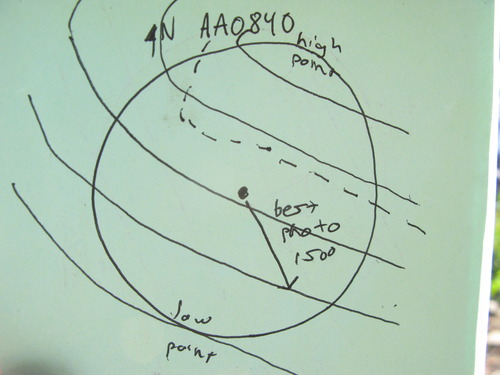 ↑N AA0840
high
point
best
photo
1500
low
point